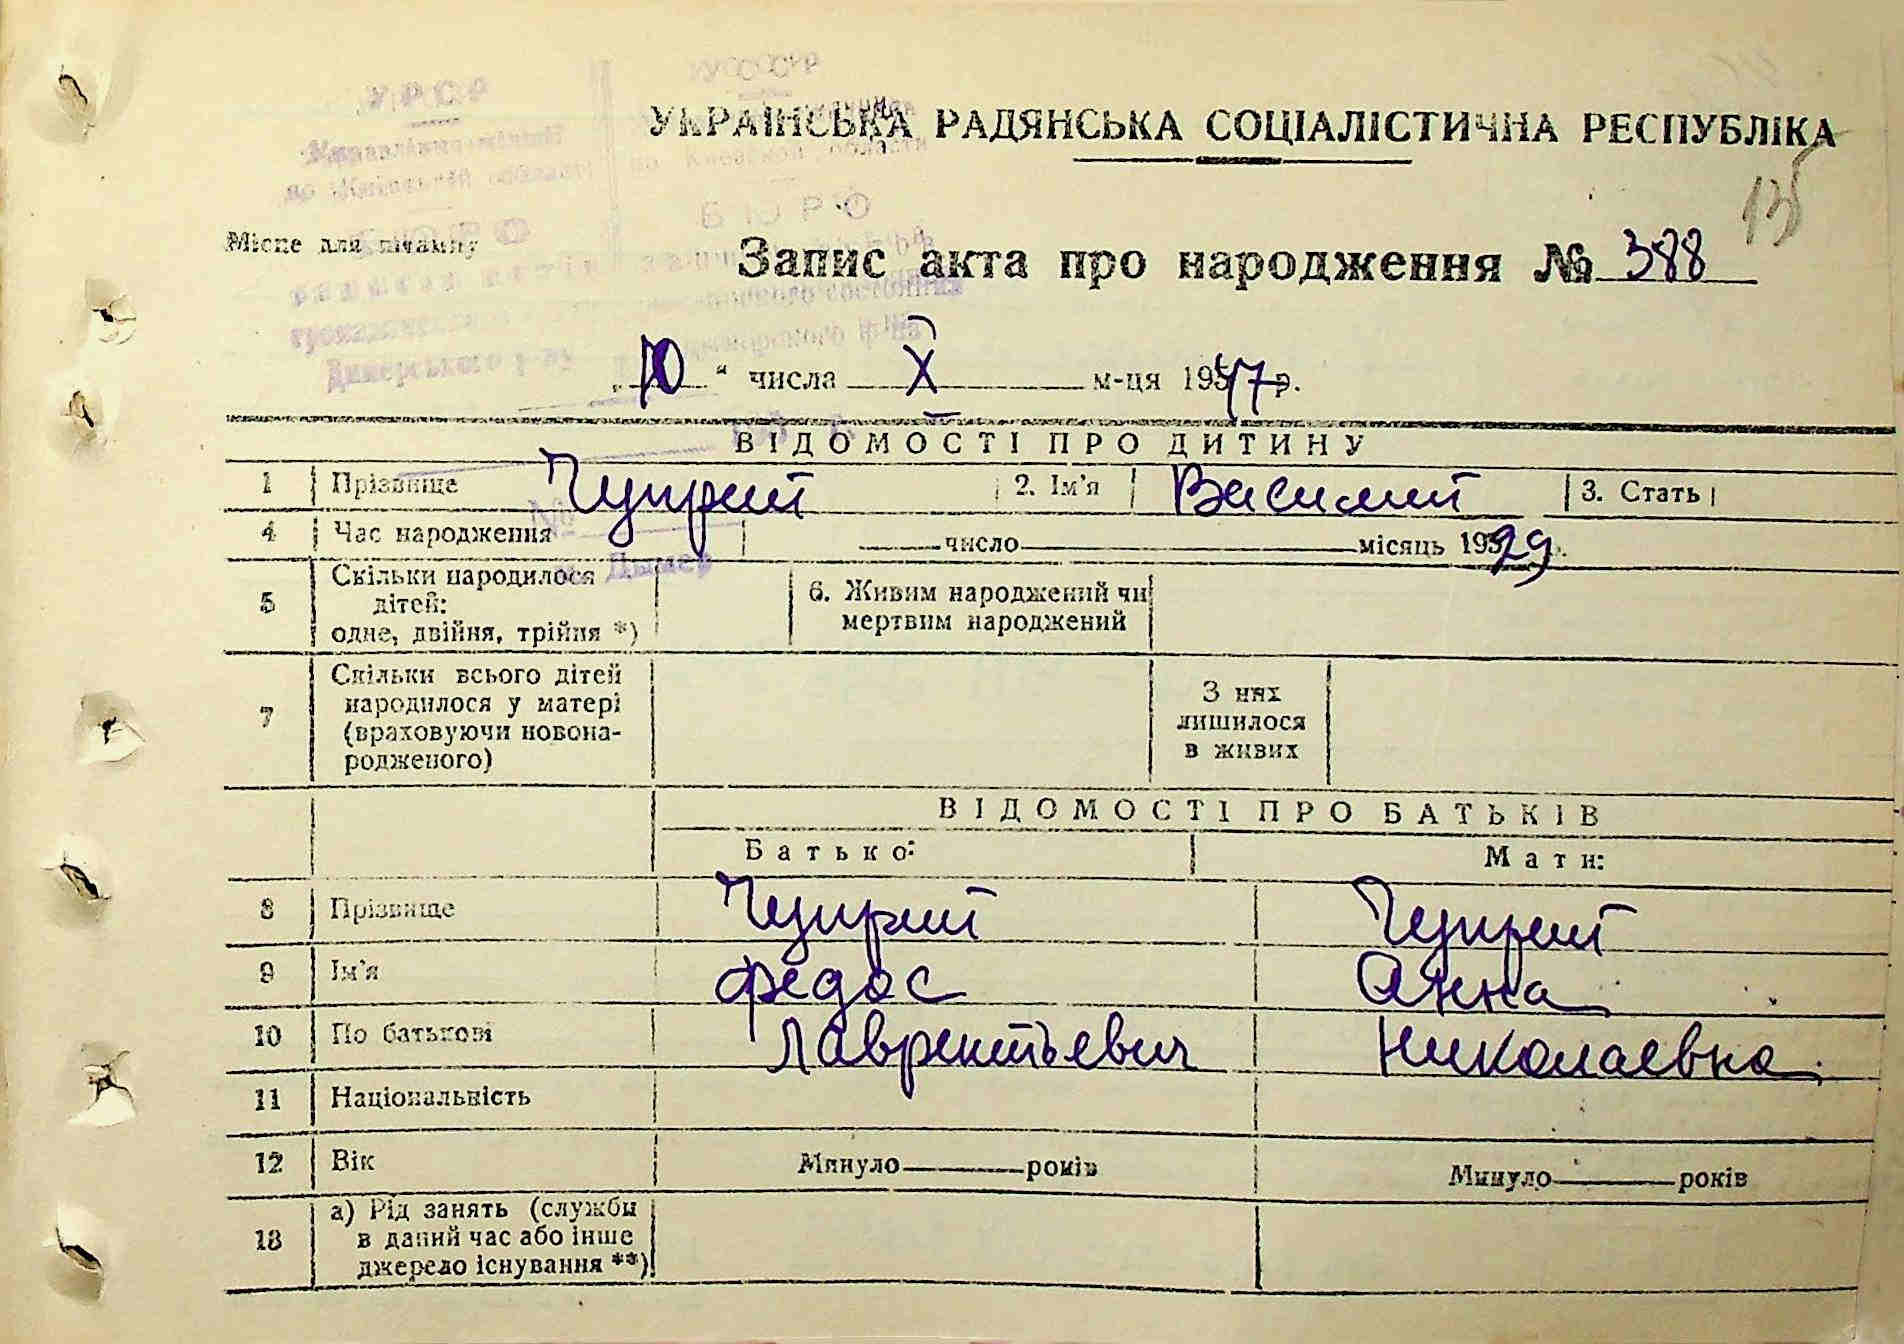 УРСР
УССР
по Київській області
по Киевской области
БЮРО
БЮРО
Димерського р-ну
УКРАЇНСЬКА РАДЯНСЬКА СОЦІАЛІСТИЧНА РЕСПУБЛІКА
135
Місце для штампу
Запис акта про народження № 388
„10“ числа X м-ця 1947 р.
ВІДОМОСТІ ПРО ДИТИНУ
1 Прізвище Чуприй 2. Ім'я Василий 3. Стать
4 Час народження число місяць 1929 р.
п. Дымер
5 Скільки народилося
дітей:
одне, двійня, трійня *)
6. Живим народжений чи
мертвим народжений
7 Скільки всього дітей
народилося у матері
(враховуючи новона-
родженого)
З них
лишилося
в живих
ВІДОМОСТІ ПРО БАТЬКІВ
Батько: Мати:
8 Прізвище Чуприй Чуприй
9 Ім'я Федос Анна
10 По батькові Лаврентьевич Николаевна
11 Національність
12 Вік Минуло років Минуло років
13 а) Рід занять (службы
в даний час або інше
джерело існування **)